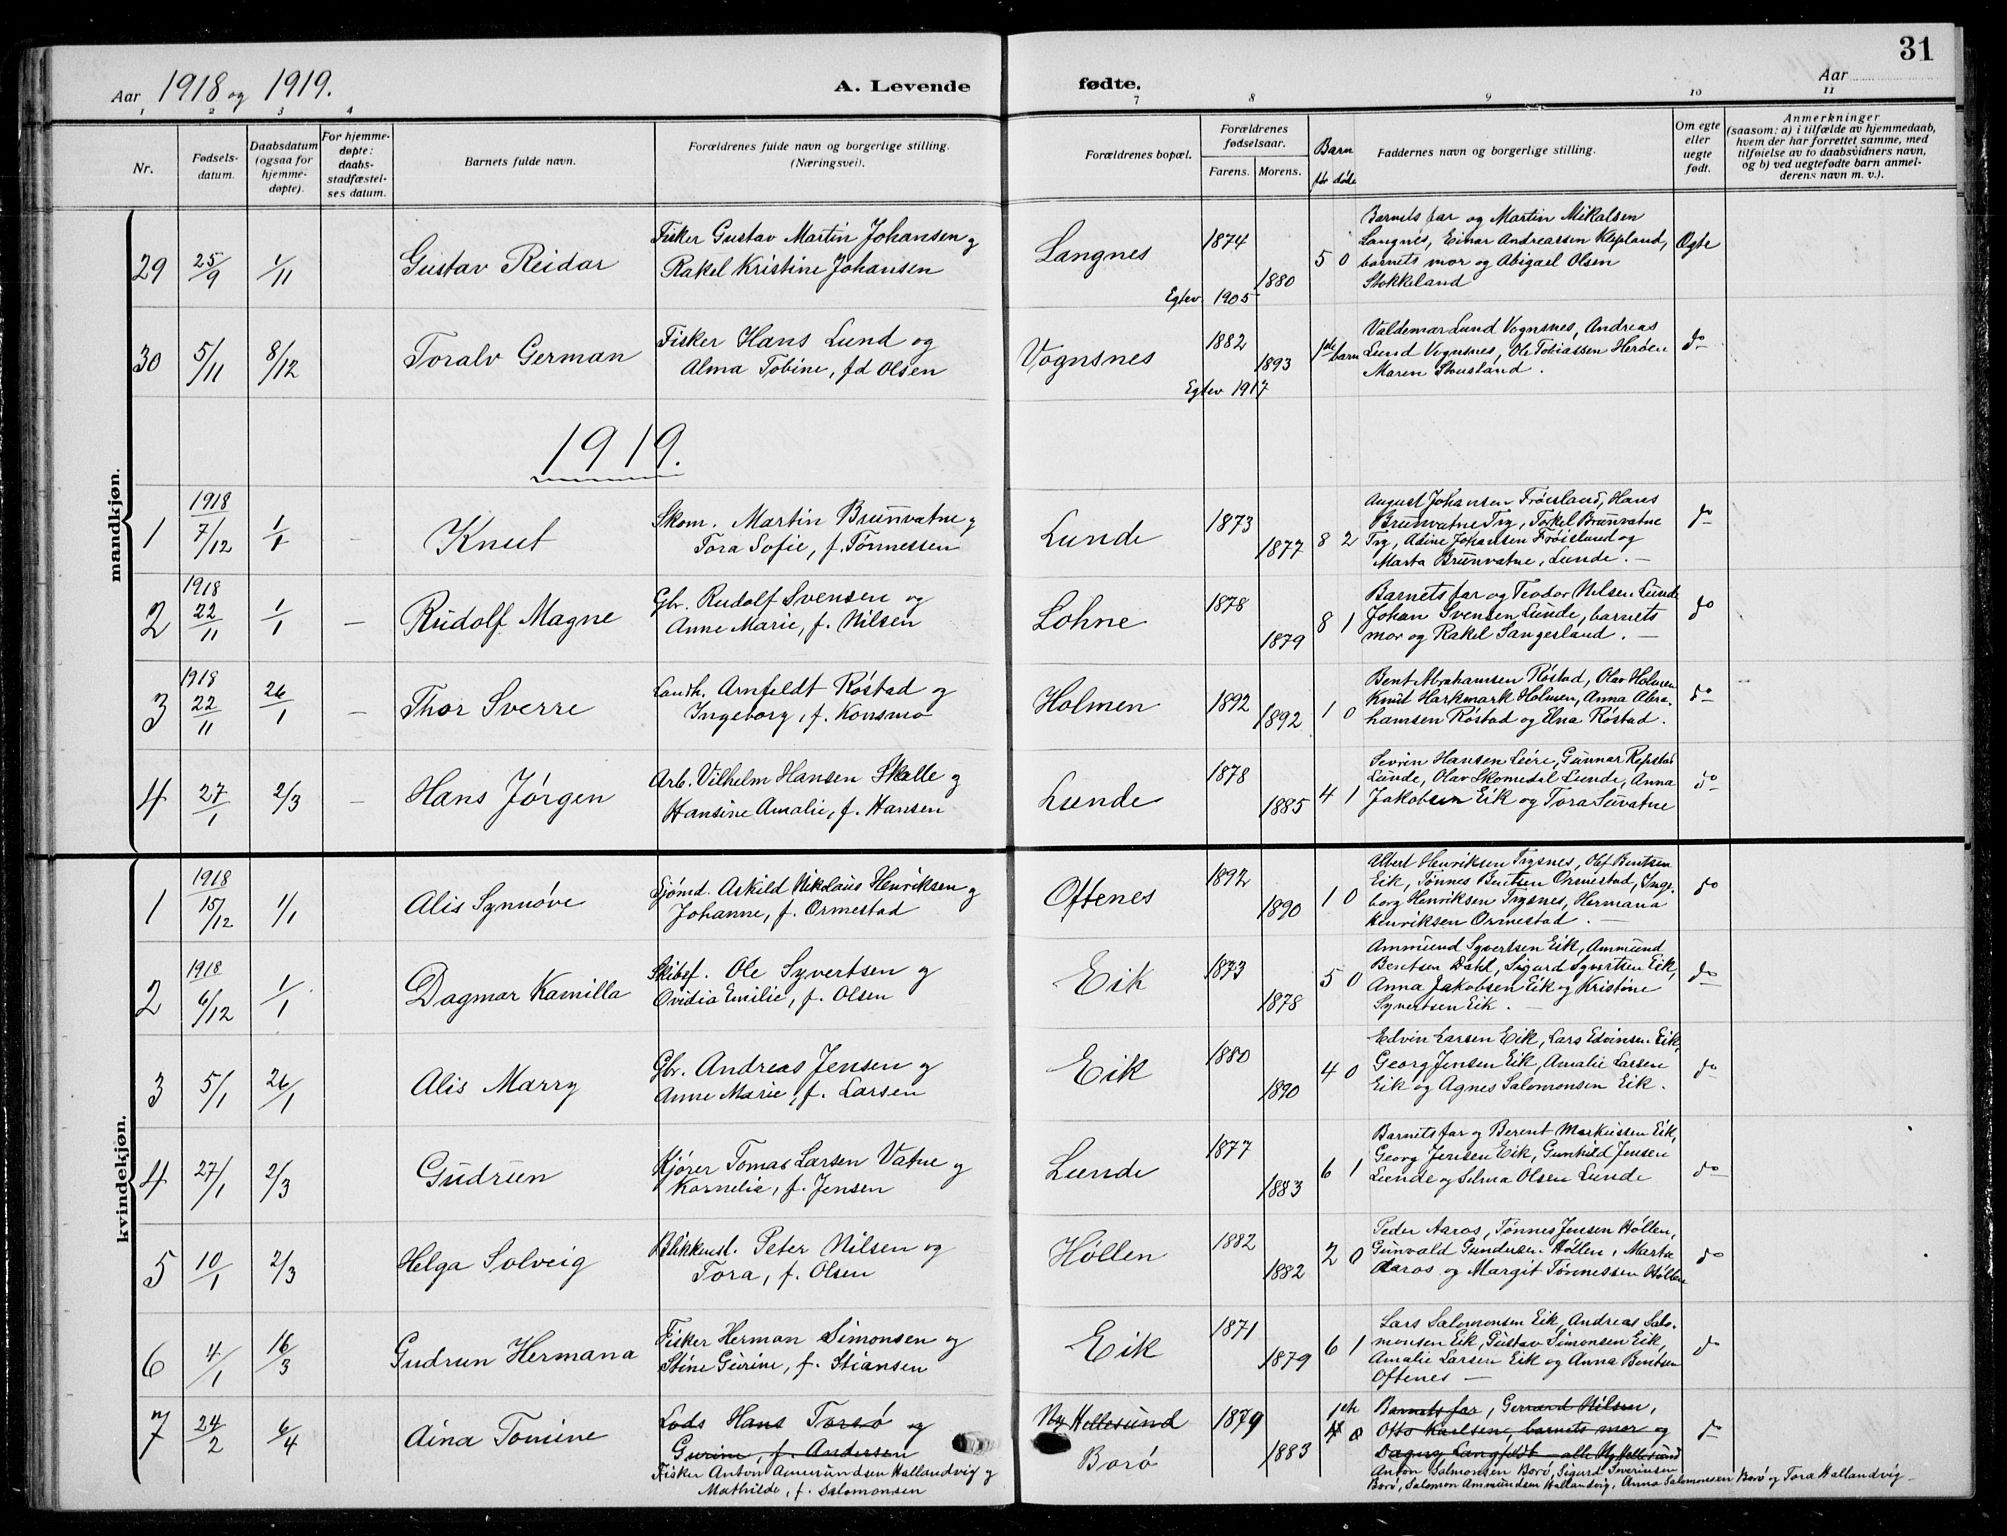 31
Aar 1918 og 1919.
A. Levende fødte.
Aar
1 2 3 4 7 8 9 10 11
Nr.
Fødsels-
datum.
Daabsdatum
(ogsaa for
hjemme-
døpte).
For hjemme-
døpte:
daabs-
stadfæstel-
ses datum.
Barnets fulde navn.
Forældrenes fulde navn og borgerlige stilling.
(Næringsvei).
Forældrenes bopæl.
Forældrenes
fødselsaar.
Farens. Morens.
Barn
før døde
Faddernes navn og borgerlige stilling.
Om egte
eller
uegte
født.
Anmerkninger
(saasom: a) i tilfælde av hjemmedaab,
hvem der har forrettet samme, med
tilføielse av to daabsvidners navn,
og b) ved uegtefødte barn anmel-
derens navn m. v.).
mandkjøn.
29 25/9 1/11 Gustav Reidar
Fisker Gustav Martin Johansen og
Rakel Kristine Johansen
Langnes 1874 1880 5 0
Egtev. 1905
Barnets far og Martin Mikalsen
Langnes, Einar Andreassen Klepland,
barnets mor og Abigael Olsen
Stokkeland
Egte
30 5/11 8/12 Toralv German
Fisker Hans Lund og
Alma Tobine, fd Olsen
Vognsnes 1882 1893 1ste barn
Egtev 1917
Valdemar Lund Vognsnes, Andreas
Lund Vognsnes, Ole Tobiassen Herøen
Maren Skusland.
do
1919.
1 1918 7/12 1/1 - Knut
Skom. Martin Brunvatne og
Tora Sofie, f. Tønnessen
Lunde 1873 1877 8 2
August Johansen Frøisland, Hans
Brunvatne Try, Torkel Brunvatne
Try, Adine Johansen Frøisland og
Marta Brunvatne, Lunde. -
do
2 1918 22/11 1/1 - Rudolf Magne
Gbr. Rudolf Svensen og
Anne Marie, f. Nilsen
Lohne 1878 1879 8 1
Barnets far og Teodor Nilsen Lunde
Johan Svensen Lunde, barnets
mor og Rakel Sangesland. -
do
3 1918 22/11 26/1 - Thor Sverre
Landh. Arnfeldt Røstad og
Ingeborg, f. Konsmo
Holmen 1892 1892 1 0
Bent Abrahamsen Røstad, Olav Holmen
Knut Harkmark Holmen, Anna Abra-
hamsen Røstad og Elna Røstad.
do
4 27/1 2/3 - Hans Jørgen
Arb. Vilhelm Hansen Skalle og
Hansine Amalie, f. Hansen
Lunde 1878 1885 4 1
Sevrin Hansen Leire, Gunnar Repstad
Lunde, Olav Skomedal Lunde, Anna
Jakobsen Eik og Tora Suvatne
do
kvindekjøn.
1 1918 15/12 1/1 Alis Synnøve
Sjømd. Askild Nikolaus Henriksen og
Johanne, f. Ormestad
Oftenes 1892 1890 1 0
Albert Henriksen Trysnes, Olef Bentsen
Eik, Tønnes Bentsen Ormestad, Inge-
borg Henriksen Trysnes, Hermana
Henriksen Ormestad. -
do
2 1918 6/12 1/1 Dagmar Kamilla
Skibsf. Ole Syvertsen og
Ovidia Emilie, f. Olsen
Eik 1873 1878 5 0
Ammund Syvertsen Eik, Ammund
Bentsen Dahl, Sigurd Syvertsen Eik,
Anna Jakobsen Eik og Kristine
Syvertsen Eik.
do
3 5/1 26/1 Alis Marry
Gbr. Andreas Jensen og
Anne Marie, f. Larsen
Eik 1880 1890 4 0
Edvin Larsen Eik, Lars Edvinsen Eik,
Georg Jensen Eik, Amalie Larsen
Eik og Agnes Salomonsen Eik.
do
4 27/1 2/3 Gudrun
Kjører Tomas Larsen Vatne og
Kornelie, f. Jensen
Lunde 1877 1883 6 1
Barnets far og Berent Markussen Eik,
Georg Jensen Eik, Gunhild Jensen
Lunde og Selma Olsen Lunde
do
5 10/1 2/3 Helga Solveig
Blikkensl. Peter Nilsen og
Tora, f. Olsen
Høllen 1882 1882 2 0
Peder Aaros, Tønnes Jensen Høllen,
Gunvald Gundersen Høllen, Marta
Aaros og Margit Tønnessen Høllen
do
6 4/1 16/3 Gudrun Hermana
Fisker Herman Simonsen og
Stine Gurine, f. Stiansen
Eik 1871 1879 6 1
Lars Salomonsen Eik, Andreas Salo-
monsen Eik, Gustav Simonsen Eik,
Amalie Larsen Eik og Anna Bentsen
Oftenes -
do
7 24/2 6/4 Aina Tomine
Lods Hans Torsø og
Gurine, f. Andersen
Fisker Anton Ammundsen Hallandvig og
Mathilde, f. Salomonsen
Ny Hellesund
Borø
1879 1883 1ste 0
Barnets far, Gerrard Nilsen,
Otto Karlsen, barnets mor og
Dagny Langfeldt alle Ny Hellesund
Anton Salmonsen Borø, Sigurd Severinsen
Borø, Salomon Ammundsen Hallandvig, Anna Salomonsen Borø og Tora Hallandvig -
do